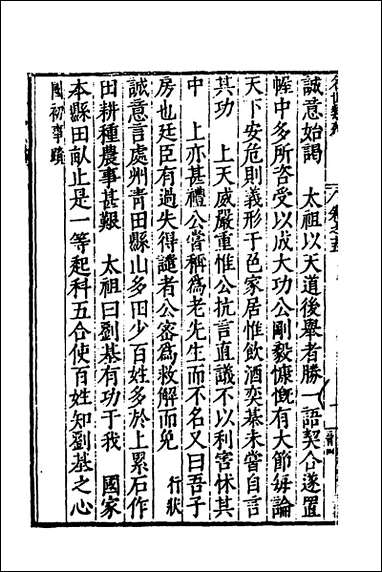 誠意始謁　太祖以天道後舉者勝一語契合遂置
幄中多所咨受以成大功公剛毅慷慨有大節每論
天下安危則義形于色家居惟飲酒奕碁未嘗自言
其功　上天威嚴重惟公抗言直議不以利害怵其
中　上亦甚禮公嘗稱爲老先生而不名又曰吾子
房也廷臣有過失得譴者公密爲救解而免　行狀
誠意言處州青田縣山多田少百姓多於上累石作
田耕種農事甚艱　太祖曰劉基有功于我　國家
本縣田畝止是一等起科五合使百姓知劉基之心
國初事蹟